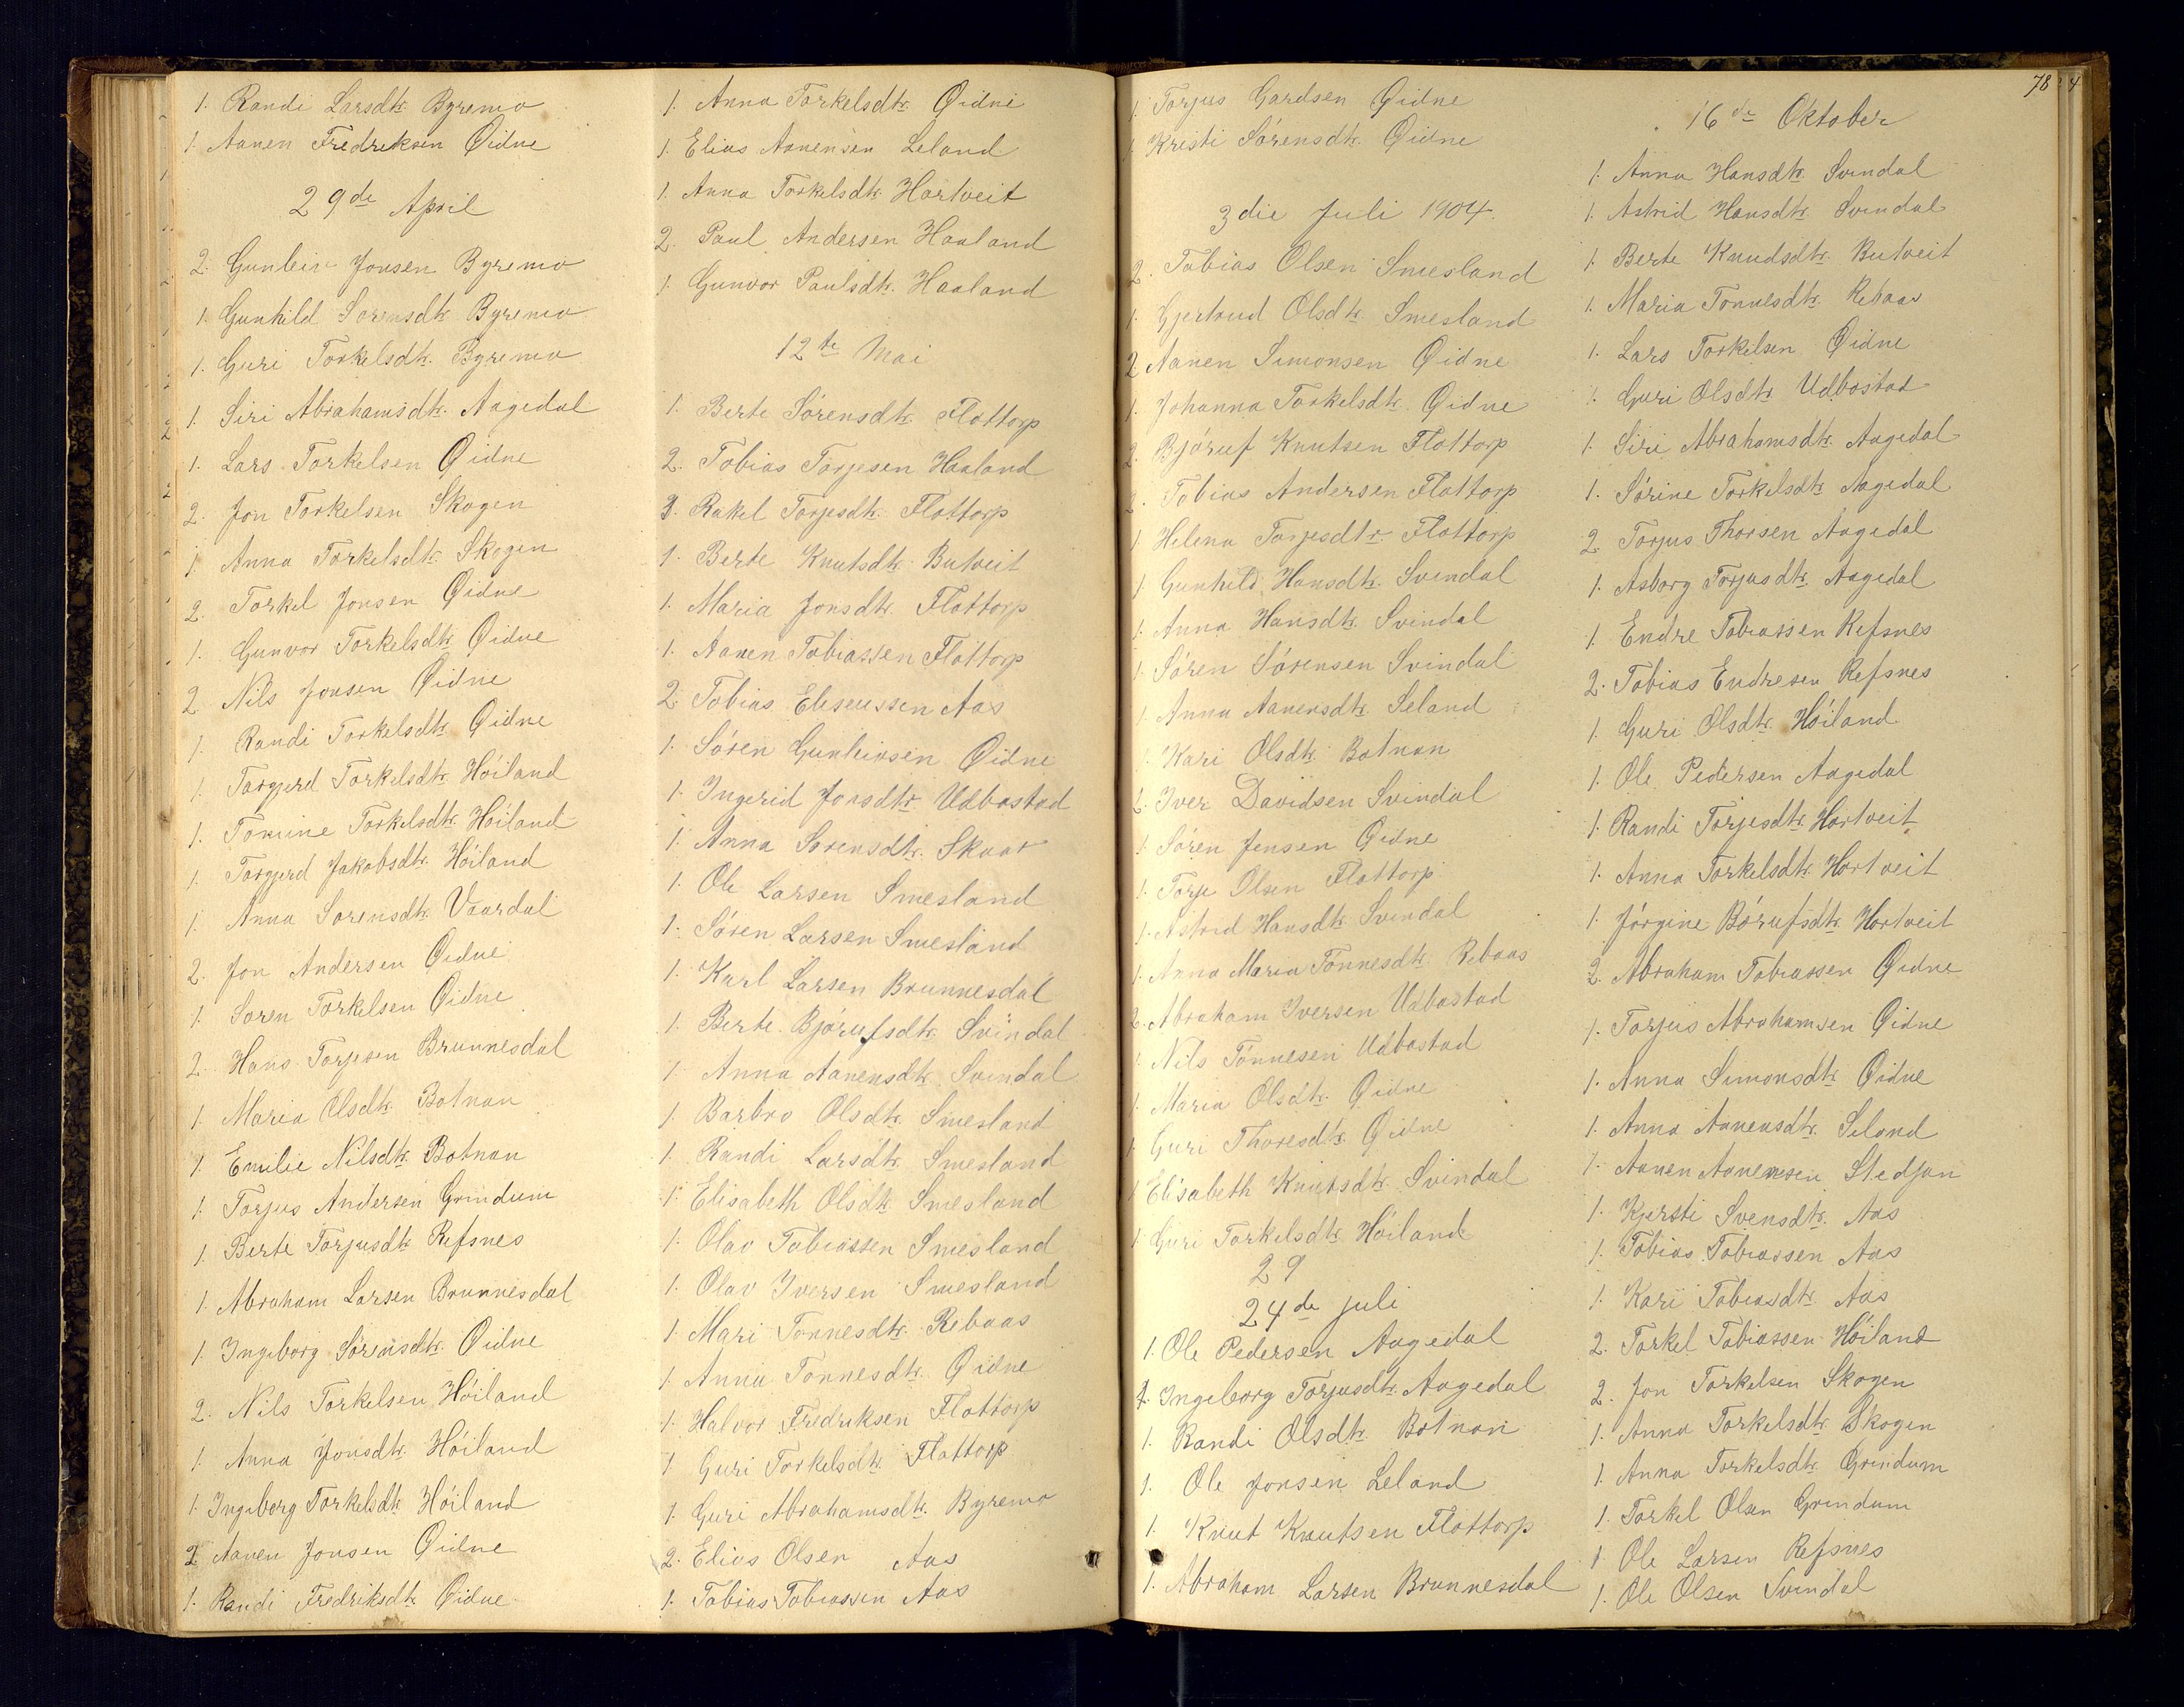 1. Randi Larsdtr. Byremo
1. Aanen Fredreksen Øidne
29de April
2. Gunleiv Jonsen Byremo
1. Gunhild Sorensdtr. Byremo
1. Guri Torkelsdtr. Byremo
1. Siri Abrahamsdtr. Aagedal
1. Lars Torkelsen Øidne
2. Jon Torkelsen Skogen
1. Anna Torkelsdtr. Skogen
2. Torkel Jonsen Øidne
1. Gunvor Torkelsdtr. Øidne
2. Nils Jonsen Øidne
1. Randi Torkelsdtr. Øidne
1. Torgjerd Torkelsdtr. Höiland
1. Tomine Torkelsdtr. Höiland
1. Torgjerd Jakobsdtr. Höiland
1. Anna Sorensdtr. Vaardal
2. Jon Andersen Øidne
1. Soren Torkelsen Øidne
2. Hans Torjesen Brunnesdal
1. Maria Olsdtr. Botnan
1. Emilie Nilsdtr. Botnan
1. Torjus Andersen Grindum
1. Berte Torjusdtr. Refsnes
1. Abraham Larsen Brunnesdal
1. Ingeborg Sörensdtr. Øidne
2. Nils Torkelsen Höiland
1. Anna Jonsdtr. Höiland
1. Ingeborg Torkelsdtr. Höiland
2. Aanen Jonsen Øidne
1. Randi Fredriksdtr. Øidne
1. Anna Torkelsdtr. Øidne
1. Elias Aanensen Leland
1. Anna Torkelsdtr. Hortveit
2. Paul Andersen Haaland
1. Gunvor Paulsdtr. Haaland
12te Mai
1. Berte Sörensdtr. Flottorp
2. Tobias Torjesen Haaland
1. Rakel Torjesdtr. Flottorp
1. Berte Knutsdtr. Butveit
1. Maria Jonsdtr. Flottorp
1. Aanen Tobiassen Flottorp
2. Tobias Eliseussen Aas
1. Sören Gunleivsen Øidne
1. Ingerid Jonsdtr. Udbostad
1. Anna Sorensdtr. Skaar
1. Ole Larsen Smesland
1. Sören Larsen Smesland
1. Karl Larsen Brunnesdal
1. Berte Björufsdtr. Svindal
1. Anna Aanensdtr. Svindal
1. Barbro Olsdtr. Smesland
1. Randi Larsdtr. Smesland
1. Elisabeth Olsdtr. Smesland
1. Olav Tobiassen Smesland
1. Olav Iversen Smesland
1. Mari Tonnesdtr. Rebaas
1. Anna Tonnesdtr. Øidne
1. Halvor Fredriksen Flottorp
1. Guri Torkelsdtr. Flottorp
1. Guri Abrahamsdtr. Byremo
2. Elias Olsen Aas
1. Tobias Tobiassen Aas
1. Torjus Gardsen Øidne
1. Kristi Sörensdtr. Øidne
3die Juli 1904.
2. Tobias Olsen Smesland
1. Gjertrud Olsdtr. Smesland
2. Aanen Simonsen Øidne
1. Johanna Torkelsdtr. Øidne
2. Björuf Knutsen Flottorp
2. Tobias Andersen Flottorp
1. Helena Torjesdtr. Flottorp
1. Gunhild Hansdtr. Svindal
1. Anna Hansdtr. Svindal
1. Sören Sörensen Svindal
1. Anna Aanensdtr. Seland
1. Kari Olsdtr. Botnan
2. Iver Davidsen Svindal
1. Sören Jensen Øidne
1. Torje Olsen Flottorp
1. Astrid Hansdtr. Svindal
1. Anna Maria Tönnesdtr. Rebaas
2. Abraham Iversen Udbostad
1. Nils Tönnesen Udbostad
1. Maria Olsdtr. Øidne
1. Guri Thoresdtr. Øidne
1. Elisabeth Knutsdtr. Svindal
1. Guri Torkelsdtr. Höiland
29
24de juli
1. Ole Pedersen Aagedal
1. Ingeborg Torjusdtr. Aagedal
1. Randi Olsdtr. Botnan
1. Ole Jonsen Leland
1. Knut Knutsen Flottorp
1. Abraham Larsen Brunnesdal
78 4
16de Oktober
1. Anna Hansdtr. Svindal
1. Astrid Hansdtr. Svindal
1. Berte Knudsdtr. Butveit
1. Maria Tonnesdtr. Rebaas
1. Lars Torkelsen Øidne
1. Guri Olsdtr. Udbostad
1. Siri Abrahamsdtr. Aagedal
1. Sörine Torkelsdtr. Aagedal
2. Torjus Thorsen Aagedal
1. Asborg Torjusdtr. Aagedal
1. Endre Tobiassen Refsnes
2. Tobias Endresen Refsnes
1. Guri Olsdtr. Höiland
1. Ole Pedersen Aagedal
1. Randi Torjesdtr. Hortveit
1. Anna Torkelsdtr. Hortveit
1. Jörgine Börufsdtr. Hortveit
2. Abraham Tobiassen Øidne
1. Torjus Abrahamsen Øidne
1. Anna Simonsdtr. Øidne
1. Anna Aanensdtr. Seland
1. Aanen Aanensen Stedjan
1. Kjersti Svensdtr. Aas
1. Tobias Tobiassen Aas
1. Kari Tobiasdtr. Aas
2. Torkel Tobiassen Höiland
2. Jon Torkelsen Skogen
1. Anna Torkelsdtr. Skogen
1. Anna Torkelsdtr. Grindum
1. Torkel Olsen Grindum
1. Ole Larsen Refsnes
1. Ole Olsen Svindal